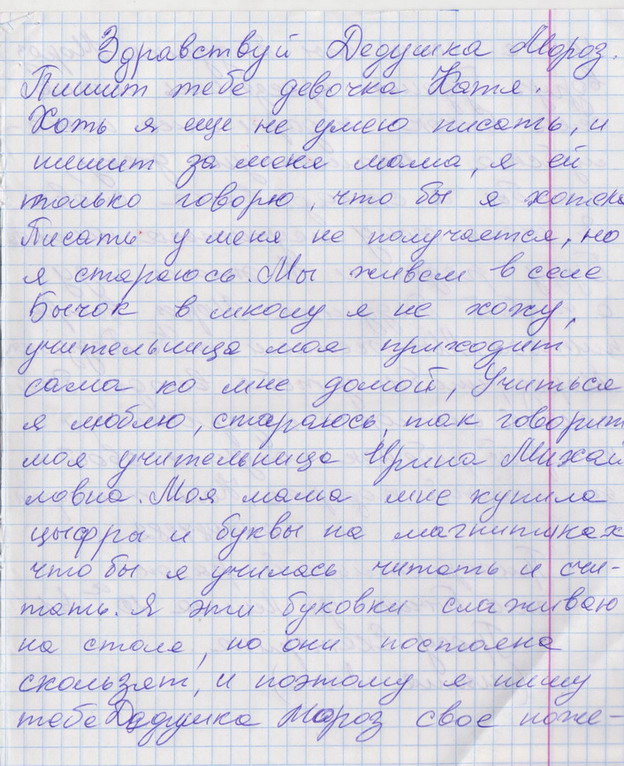 Здравствуй Дедушка Мороз.
Пишит тебе девочка Катя.
Хоть я еще не умею писать, и
пишит за меня мама, я ей
только говорю, что бы я хотела
Писать у меня не получается, но
я стараюсь. Мы живем в селе
Бычок в школу я не хожу,
учительница моя приходит
сама ко мне домой, Учиться
я люблю, стараюсь, так говорит
моя учительница Ирина Михай
ловна. Моя мама мне купила
цыфры и буквы на магнитиках
что бы я училась читать и счи-
тать. Я эти буковки слаживаю
на столе, но они постояна
скользят, и поэтому я пишу
тебе Дедушка Мороз свое поже-